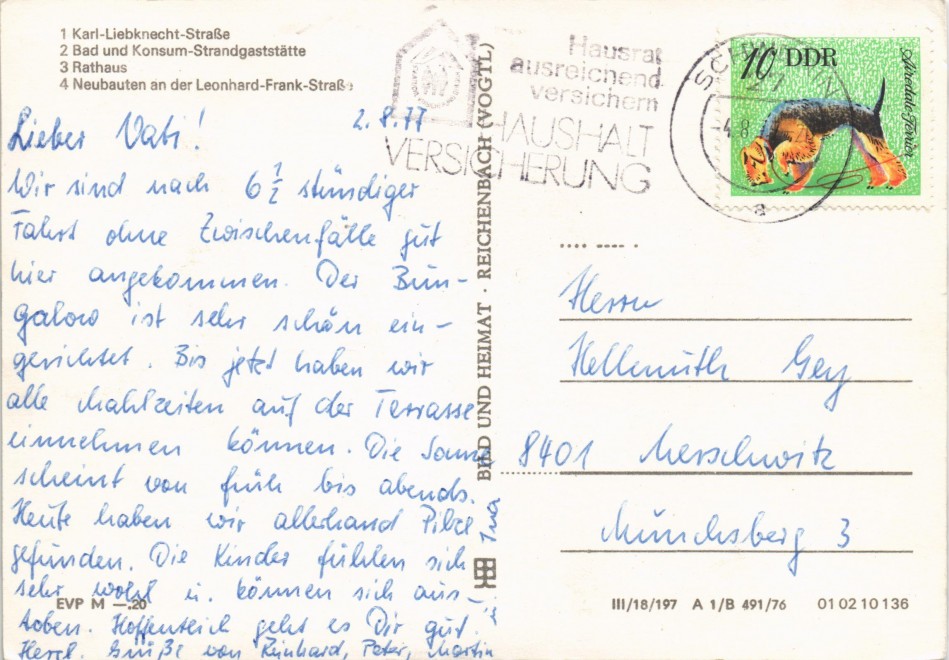 1 Karl-Liebknecht-Straße
2 Bad und Konsum-Strandgaststätte
3 Rathaus
4 Neubauten an der Leonhard-Frank-Straße
Lieber Vati! 2.8.77
Wir sind nach 6 1/2 stündiger
Fahrt ohne Zwischenfälle gut
hier angekommen. Der Bun-
galow ist sehr schön ein-
gerichtet. Bis jetzt haben wir
alle Mahlzeiten auf der Terrasse
einnehmen können. Die Sonne
scheint von früh bis abends.
Heute haben wir allerhand Pilze
gefunden. Die Kinder fühlen sich
sehr wohl u. können sich aus-
toben. Hoffentlich geht es Dir gut.
Herzl. Grüße von Reinhard, Peter, Martin
EVP M —.20
BILD UND HEIMAT · REICHENBACH (VOGTL)
Hausrat
ausreichend
versichern
HAUSHALT
VERSICHERUNG
10 DDR
Airedale-Terrier
a
Herrn
Hellmuth Gey
8401 Merschwitz
Münchsberg 3
III/18/197 A 1/B 491/76 01 02 10 136